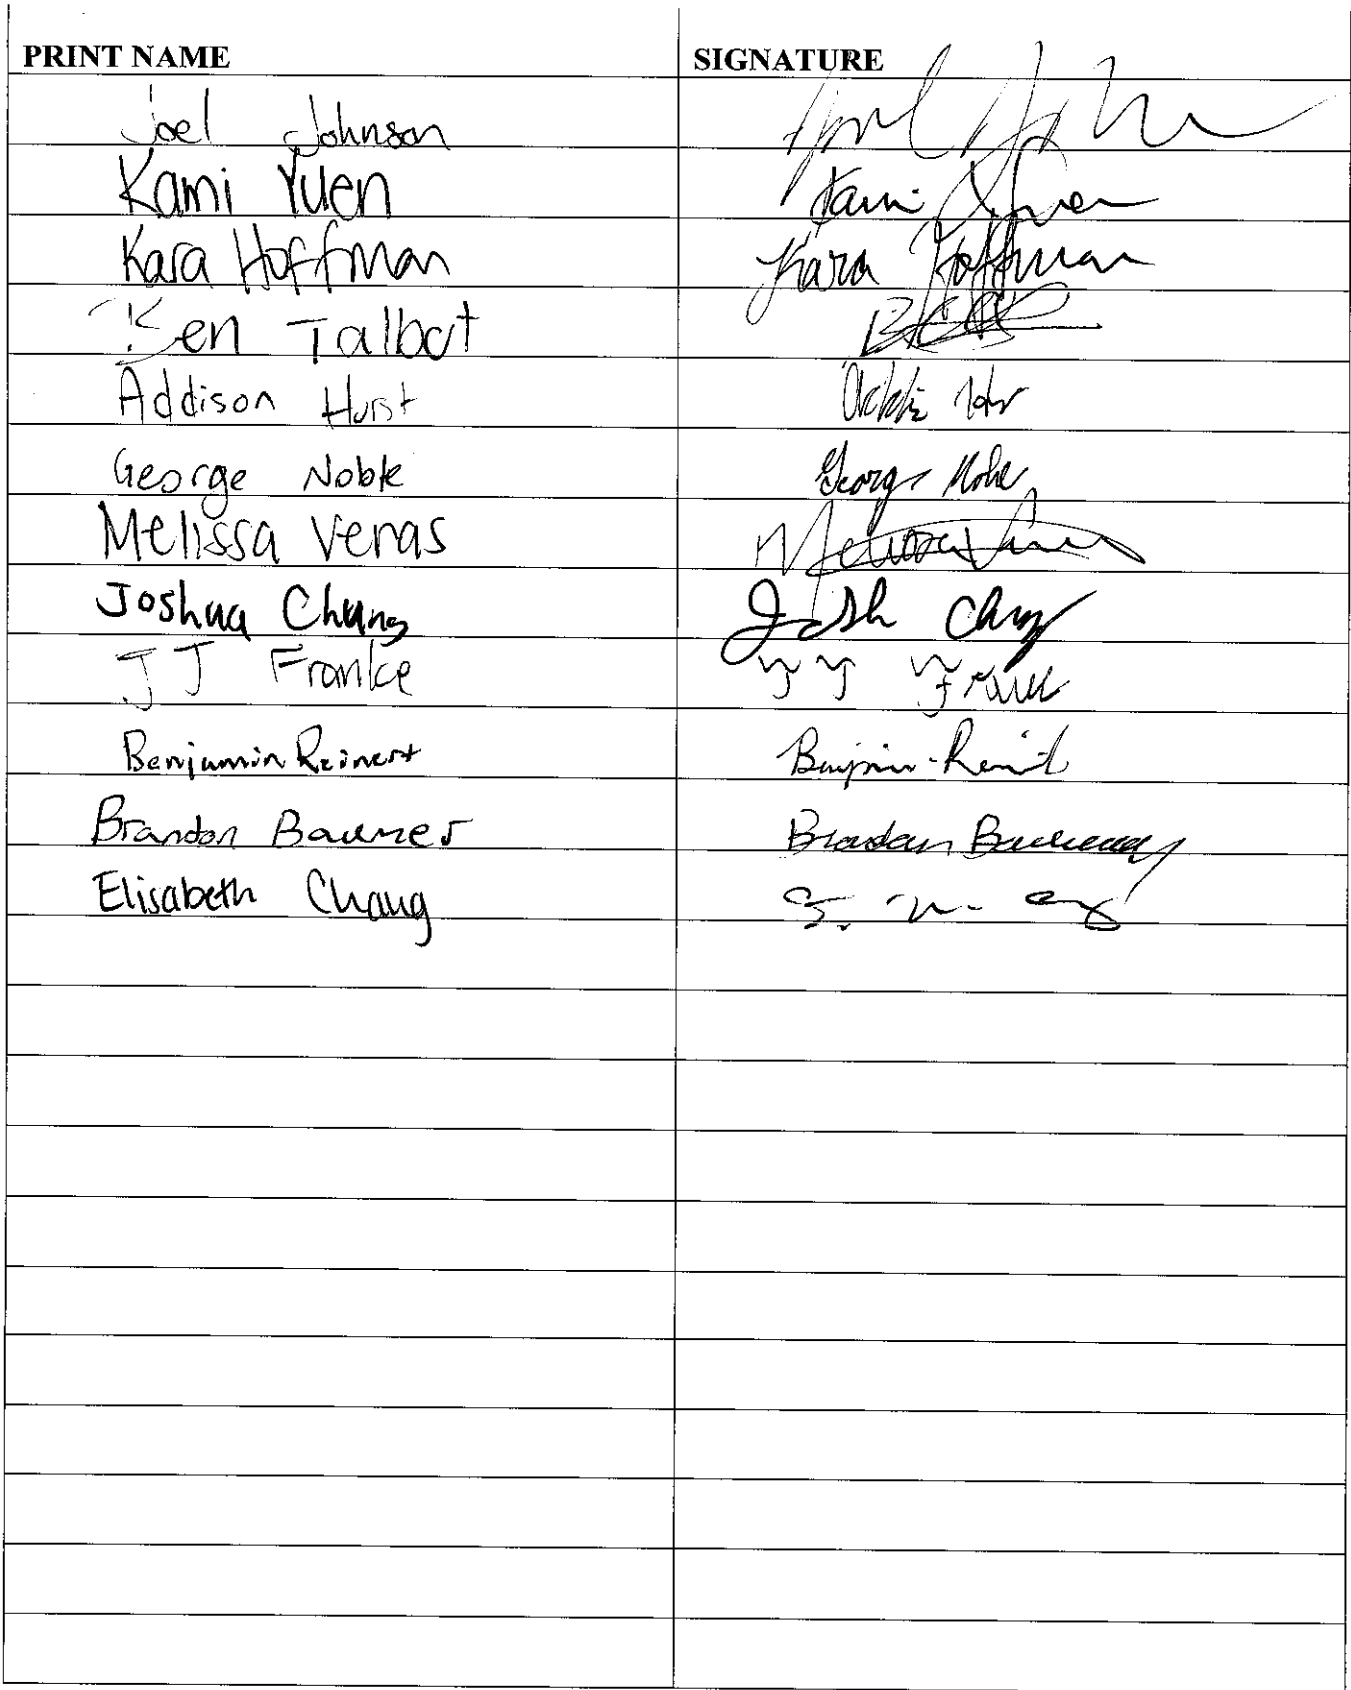 PRINT NAME SIGNATURE
Joel Johnson
Kami Yuen Kami Yuen
Kara Hoffman Kara Hoffman
Ben Talbot
Addison Hurst
George Noble George Noble
Melissa Veras Melissa Veras
Joshua Chung Josh Chung
JJ Franke JJ Franke
Benjamin Reinert
Brandon Baumer Brandon
Elisabeth Chang